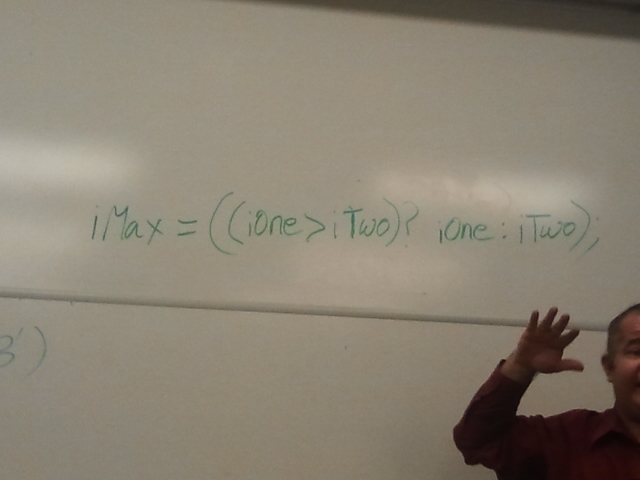 iMax = ((iOne>iTwo)? iOne : iTwo);
3')